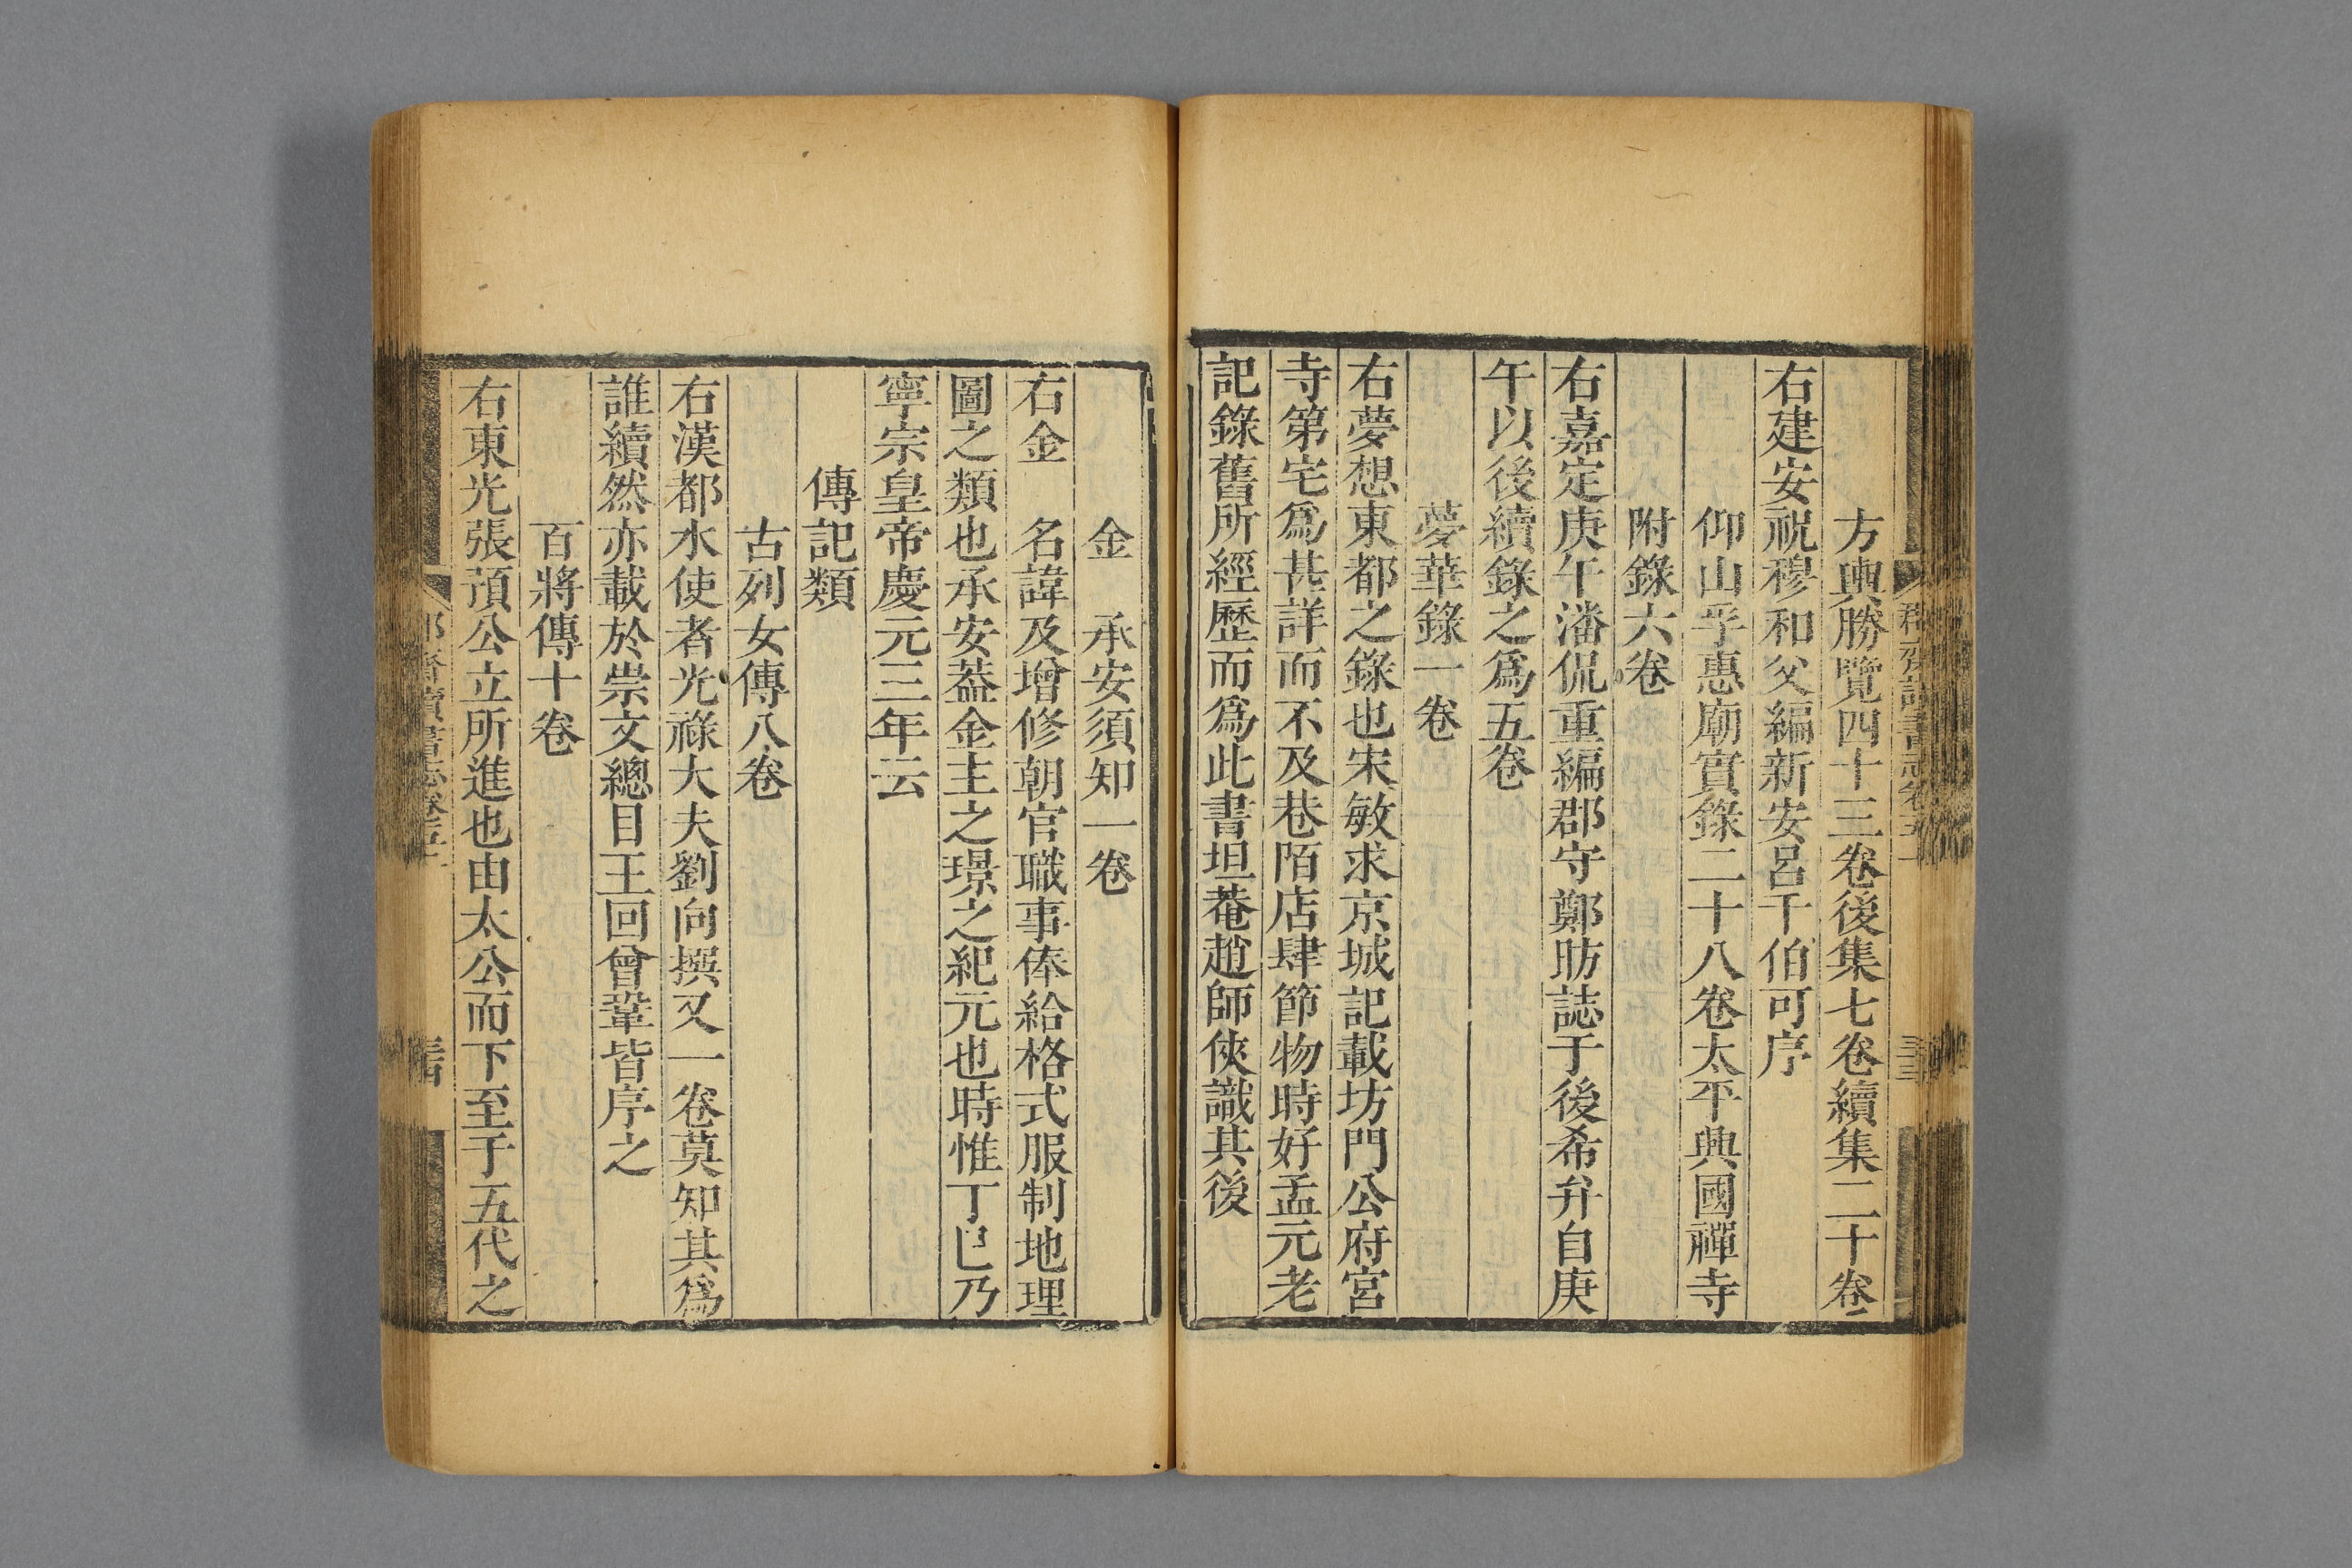 方輿勝覽四十三卷後集七卷續集二十卷
右建安祝穆和父編新安呂午伯可序
仰山孚惠廟實錄二十八卷太平興國禪寺
附錄六卷
右嘉定庚午潘侃重編郡守鄭昉誌于後希弁自庚
午以後續錄之爲五卷
夢華錄一卷
右夢想東都之錄也宋敏求京城記載坊門公府宮
寺第宅爲甚詳而不及巷陌店肆節物時好孟元老
記錄舊所經歷而爲此書坦菴趙師俠識其後
金　承安須知一卷
右金　名諱及增修朝官職事俸給格式服制地理
圖之類也承安葢金主之璟之紀元也時惟丁巳乃
寧宗皇帝慶元三年云
傳記類
古列女傳八卷
右漢都水使者光祿大夫劉向撰又一卷莫知其爲
誰續然亦載於崇文總目王回曾鞏皆序之
百將傳十卷
右東光張預公立所進也由太公而下至于五代之